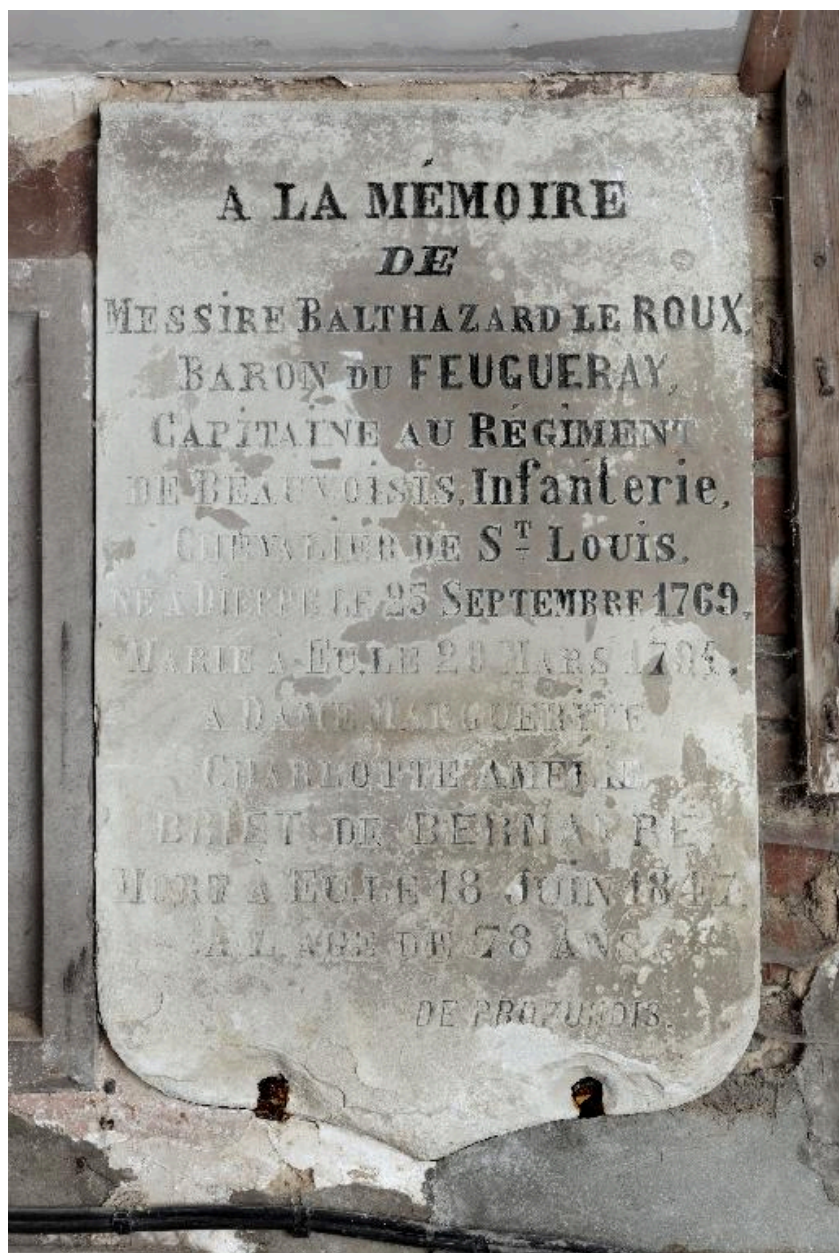 A LA MÉMOIRE
DE
MESSIRE BALTHAZARD LE ROUX,
BARON DU FEUGUERAY,
CAPITAINE AU RÉGIMENT
DE BEAUVOISIS, Infanterie,
CHEVALIER DE ST LOUIS,
NÉ A DIEPPE LE 25 SEPTEMBRE 1769,
MARIÉ À EU, LE 29 MARS 1791,
A DAME MARGUERITE
CHARLOTTE AMELIE
BRIET DE BERNAPRÉ,
MORT À EU, LE 18 JUIN 1847,
À L'AGE DE 78 ANS.
DE PROFUNDIS.